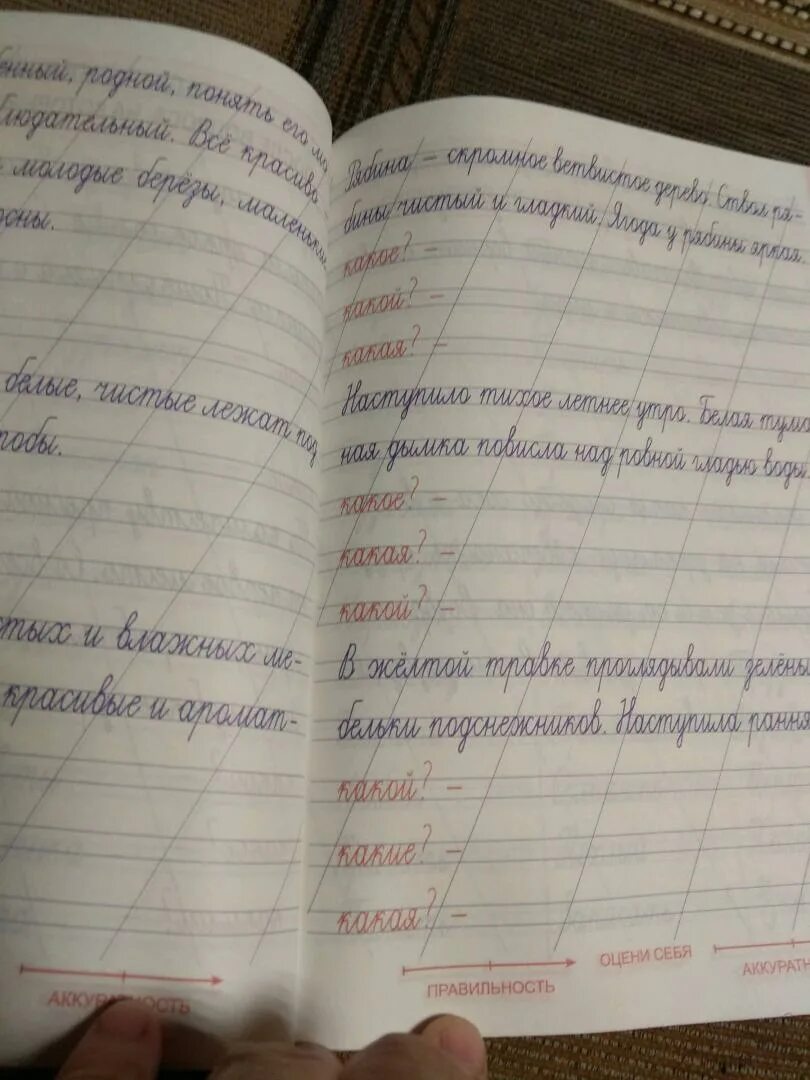 родной, понять его
Всё красиво
молодые берёзы, маленькие
белые, чистые лежат под
и влажных ме-
красивые и аромат-
АККУРАТНОСТЬ
Рябина – скромное ветвистое дерево. Ствол ря-
бины чистый и гладкий. Ягода у рябины яркая.
какое? –
какой? –
какая? –
Наступило тихое летнее утро. Белая тума
ная дымка повисла над ровной гладью воды
какое? –
какая? –
какой? –
В жёлтой травке проглядывали зелёны
бельки подснежников. Наступила рання
какой? –
какие? –
какая? –
ПРАВИЛЬНОСТЬ
ОЦЕНИ СЕБЯ
АККУРАТН